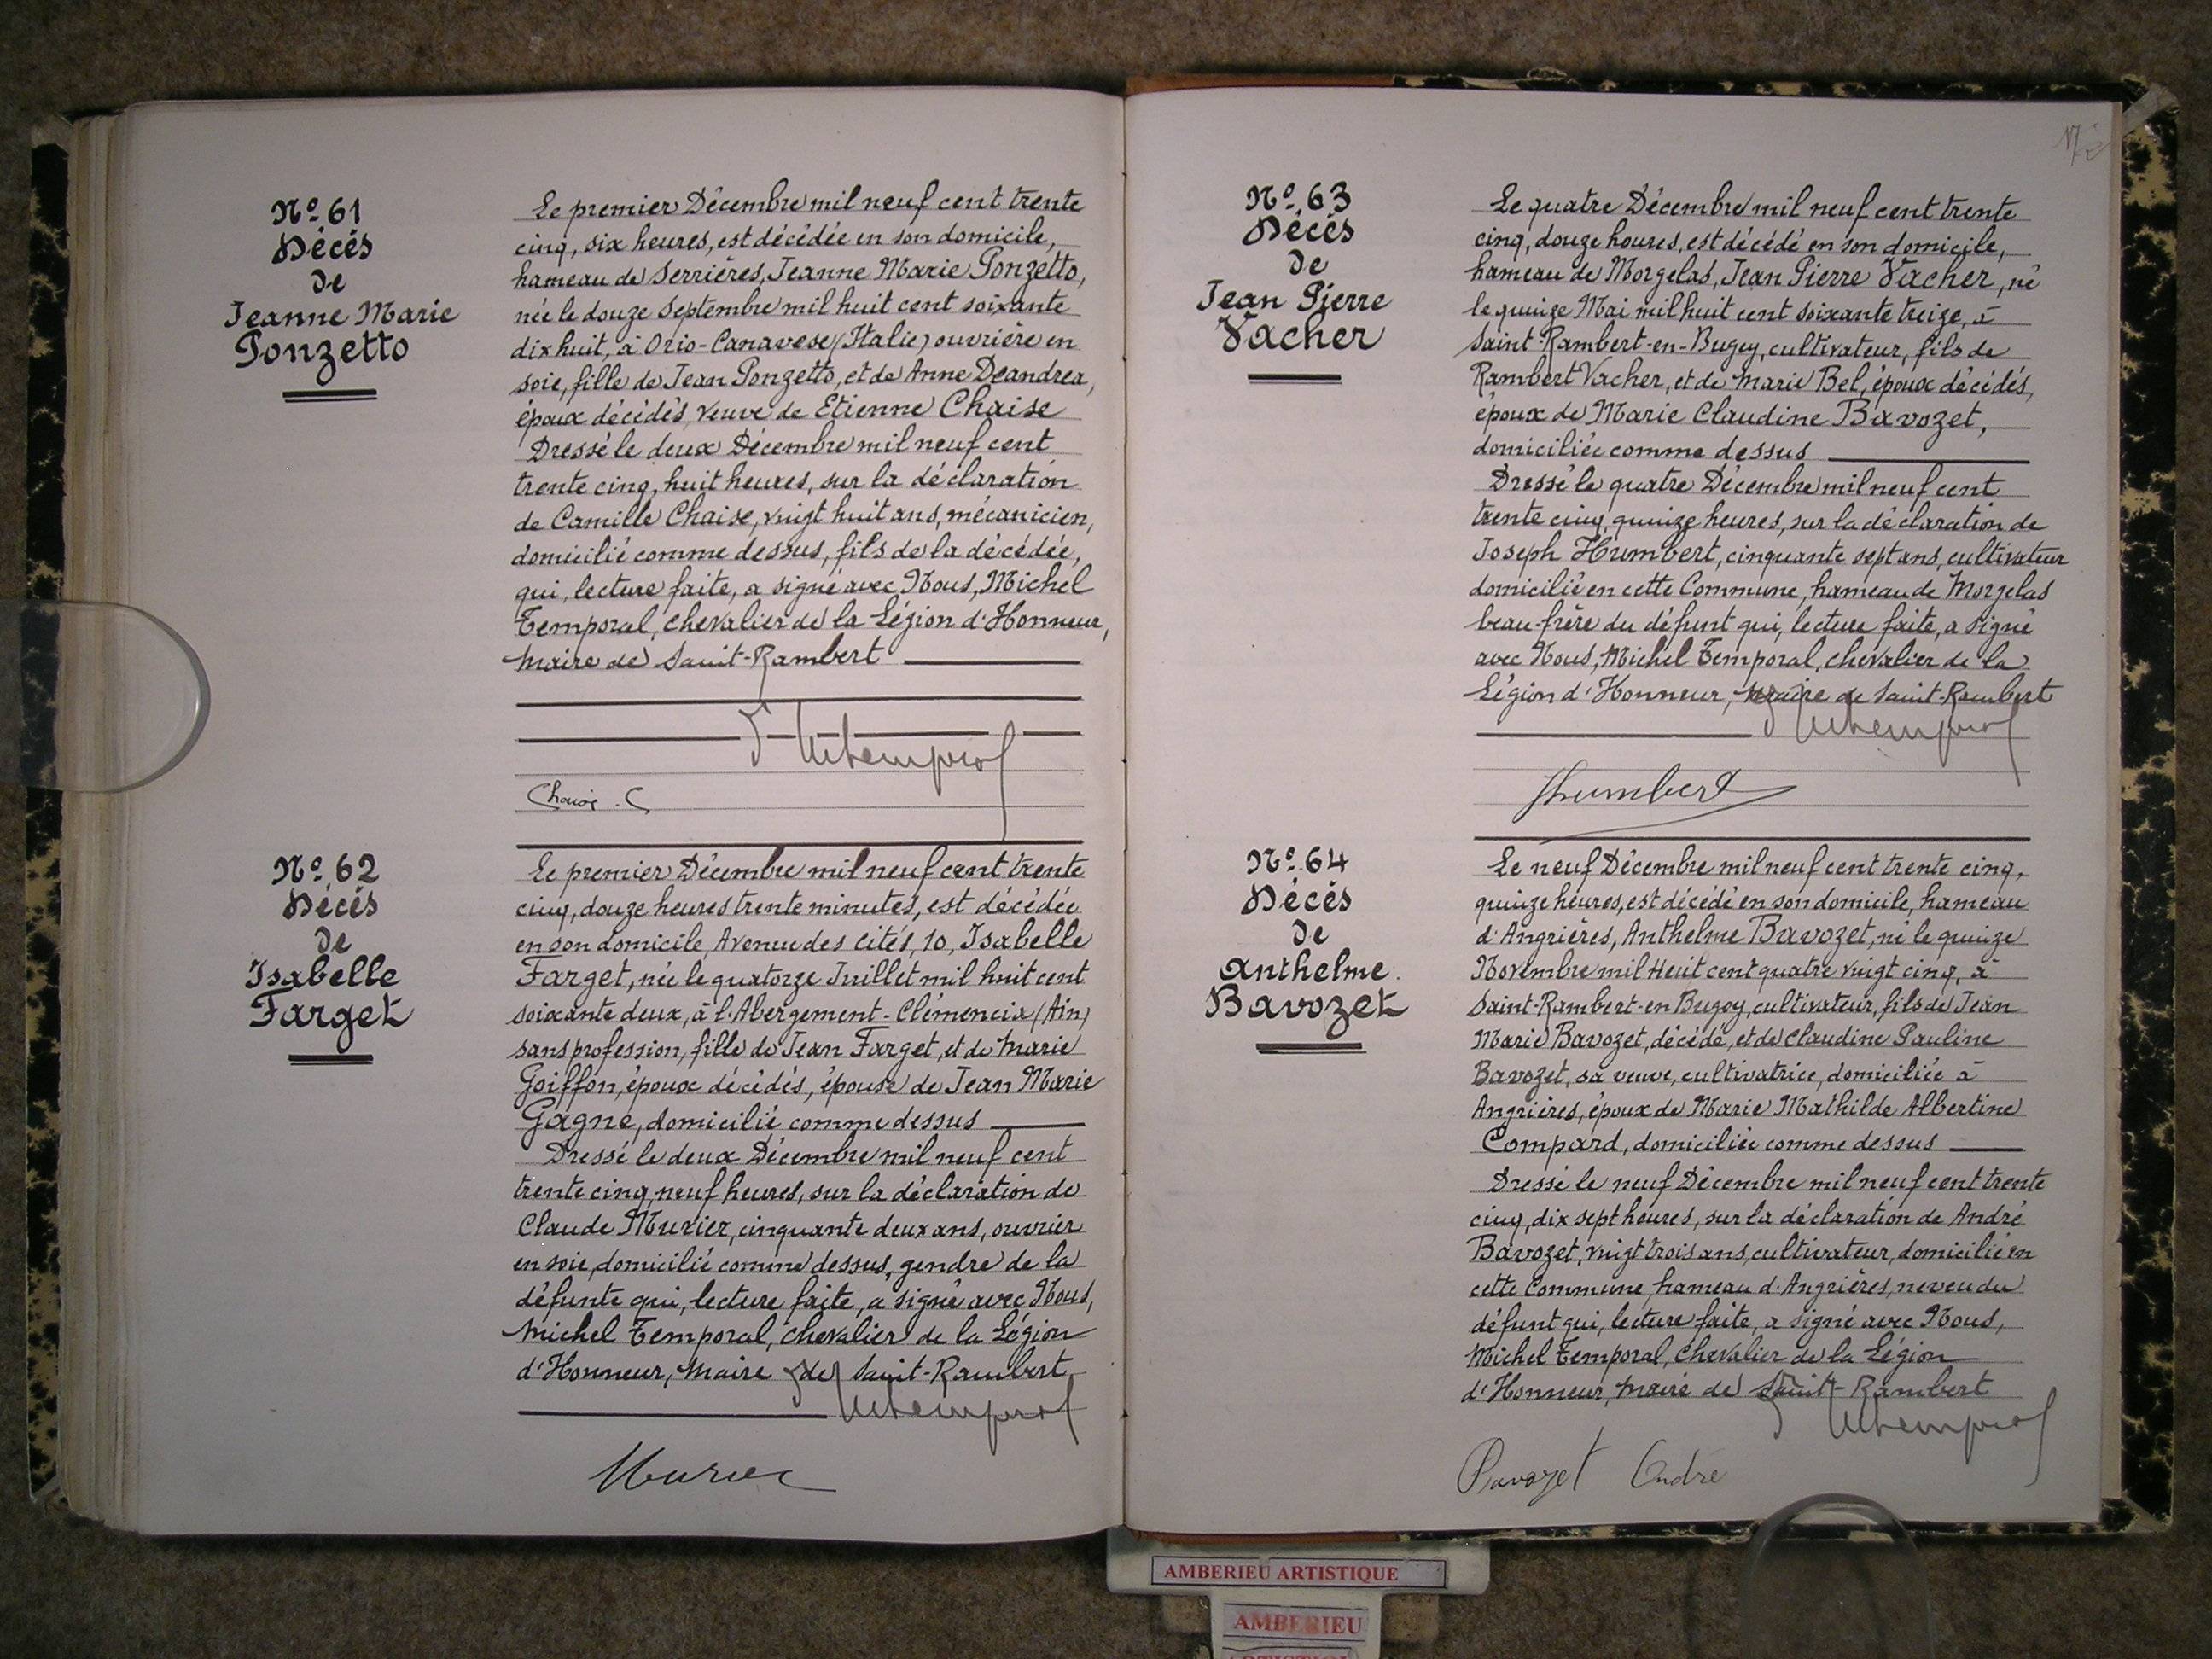 Nº 61
Décès
de
Jeanne Marie
Ponzetto
Le premier Décembre mil neuf cent trente
cinq, six heures, est décédée en son domicile,
hameau de Serrières, Jeanne Marie Ponzetto,
née le douze Septembre mil huit cent soixante
dix huit, à Ozio-Canavese (Italie) ouvrière en
soie, fille de Jean Ponzetto, et de Anne Deandrea,
époux décédés, veuve de Etienne Chaise
Dressé le deux Décembre mil neuf cent
trente cinq, huit heures, sur la déclaration
de Camille Chaise, vingt huit ans, mécanicien,
domicilié comme dessus, fils de la décédée,
qui, lecture faite, a signé avec Nous, Michel
Temporal, chevalier de la Légion d'Honneur,
maire de Saint-Rambert
Chaise . C
Nº 62
Décès
de
Isabelle
Farget
Le premier Décembre mil neuf cent trente
cinq, douze heures trente minutes, est décédée
en son domicile, Avenue des Cités, 10, Isabelle
Farget, née le quatorze Juillet mil huit cent
soixante deux, à l'Abergement-Clémencia (Ain)
sans profession, fille de Jean Farget, et de Marie
Goiffon, époux décédés, épouse de Jean Marie
Gagne, domicilié comme dessus
Dressé le deux Décembre mil neuf cent
trente cinq, neuf heures, sur la déclaration de
Claude Murier, cinquante deux ans, ouvrier
en soie, domicilié comme dessus, gendre de la
défunte qui, lecture faite, a signé avec Nous,
Michel Temporal, chevalier de la Légion
d'Honneur, maire de Saint-Rambert
Murier
Nº 63
Décès
de
Jean Pierre
Vacher
Le quatre Décembre mil neuf cent trente
cinq, douze heures, est décédé en son domicile,
hameau de Morgelas, Jean Pierre Vacher, né
le quinze Mai mil huit cent soixante treize, à
Saint-Rambert-en-Bugey, cultivateur, fils de
Rambert Vacher, et de Marie Bel, époux décédés,
époux de Marie Claudine Bavozet,
domiciliée comme dessus
Dressé le quatre Décembre mil neuf cent
trente cinq, quinze heures, sur la déclaration de
Joseph Humbert, cinquante sept ans, cultivateur
domicilié en cette Commune, hameau de Morgelas
beau-frère du défunt qui, lecture faite, a signé
avec Nous, Michel Temporal, chevalier de la
Légion d'Honneur, maire de Saint-Rambert
JHumbert
Nº 64
Décès
de
Anthelme
Bavozet
Le neuf Décembre mil neuf cent trente cinq,
quinze heures, est décédé en son domicile, hameau
d'Angrières, Anthelme Bavozet, né le quinze
Novembre mil Huit cent quatre vingt cinq, à
Saint-Rambert-en Bugey, cultivateur, fils de Jean
Marie Bavozet, décédé, et de Claudine Pauline
Bavozet, sa veuve, cultivatrice, domiciliée à
Angrières, époux de Marie Mathilde Albertine
Compard, domiciliée comme dessus
Dressé le neuf Décembre mil neuf cent trente
cinq, dix sept heures, sur la déclaration de André
Bavozet, vingt trois ans, cultivateur, domicilié en
cette Commune, hameau d'Angrières, neveu du
défunt qui, lecture faite, a signé avec Nous,
Michel Temporal, Chevalier de la Légion
d'Honneur, maire de Saint-Rambert
Bavozet André
AMBERIEU ARTISTIQUE
AMBERIEU